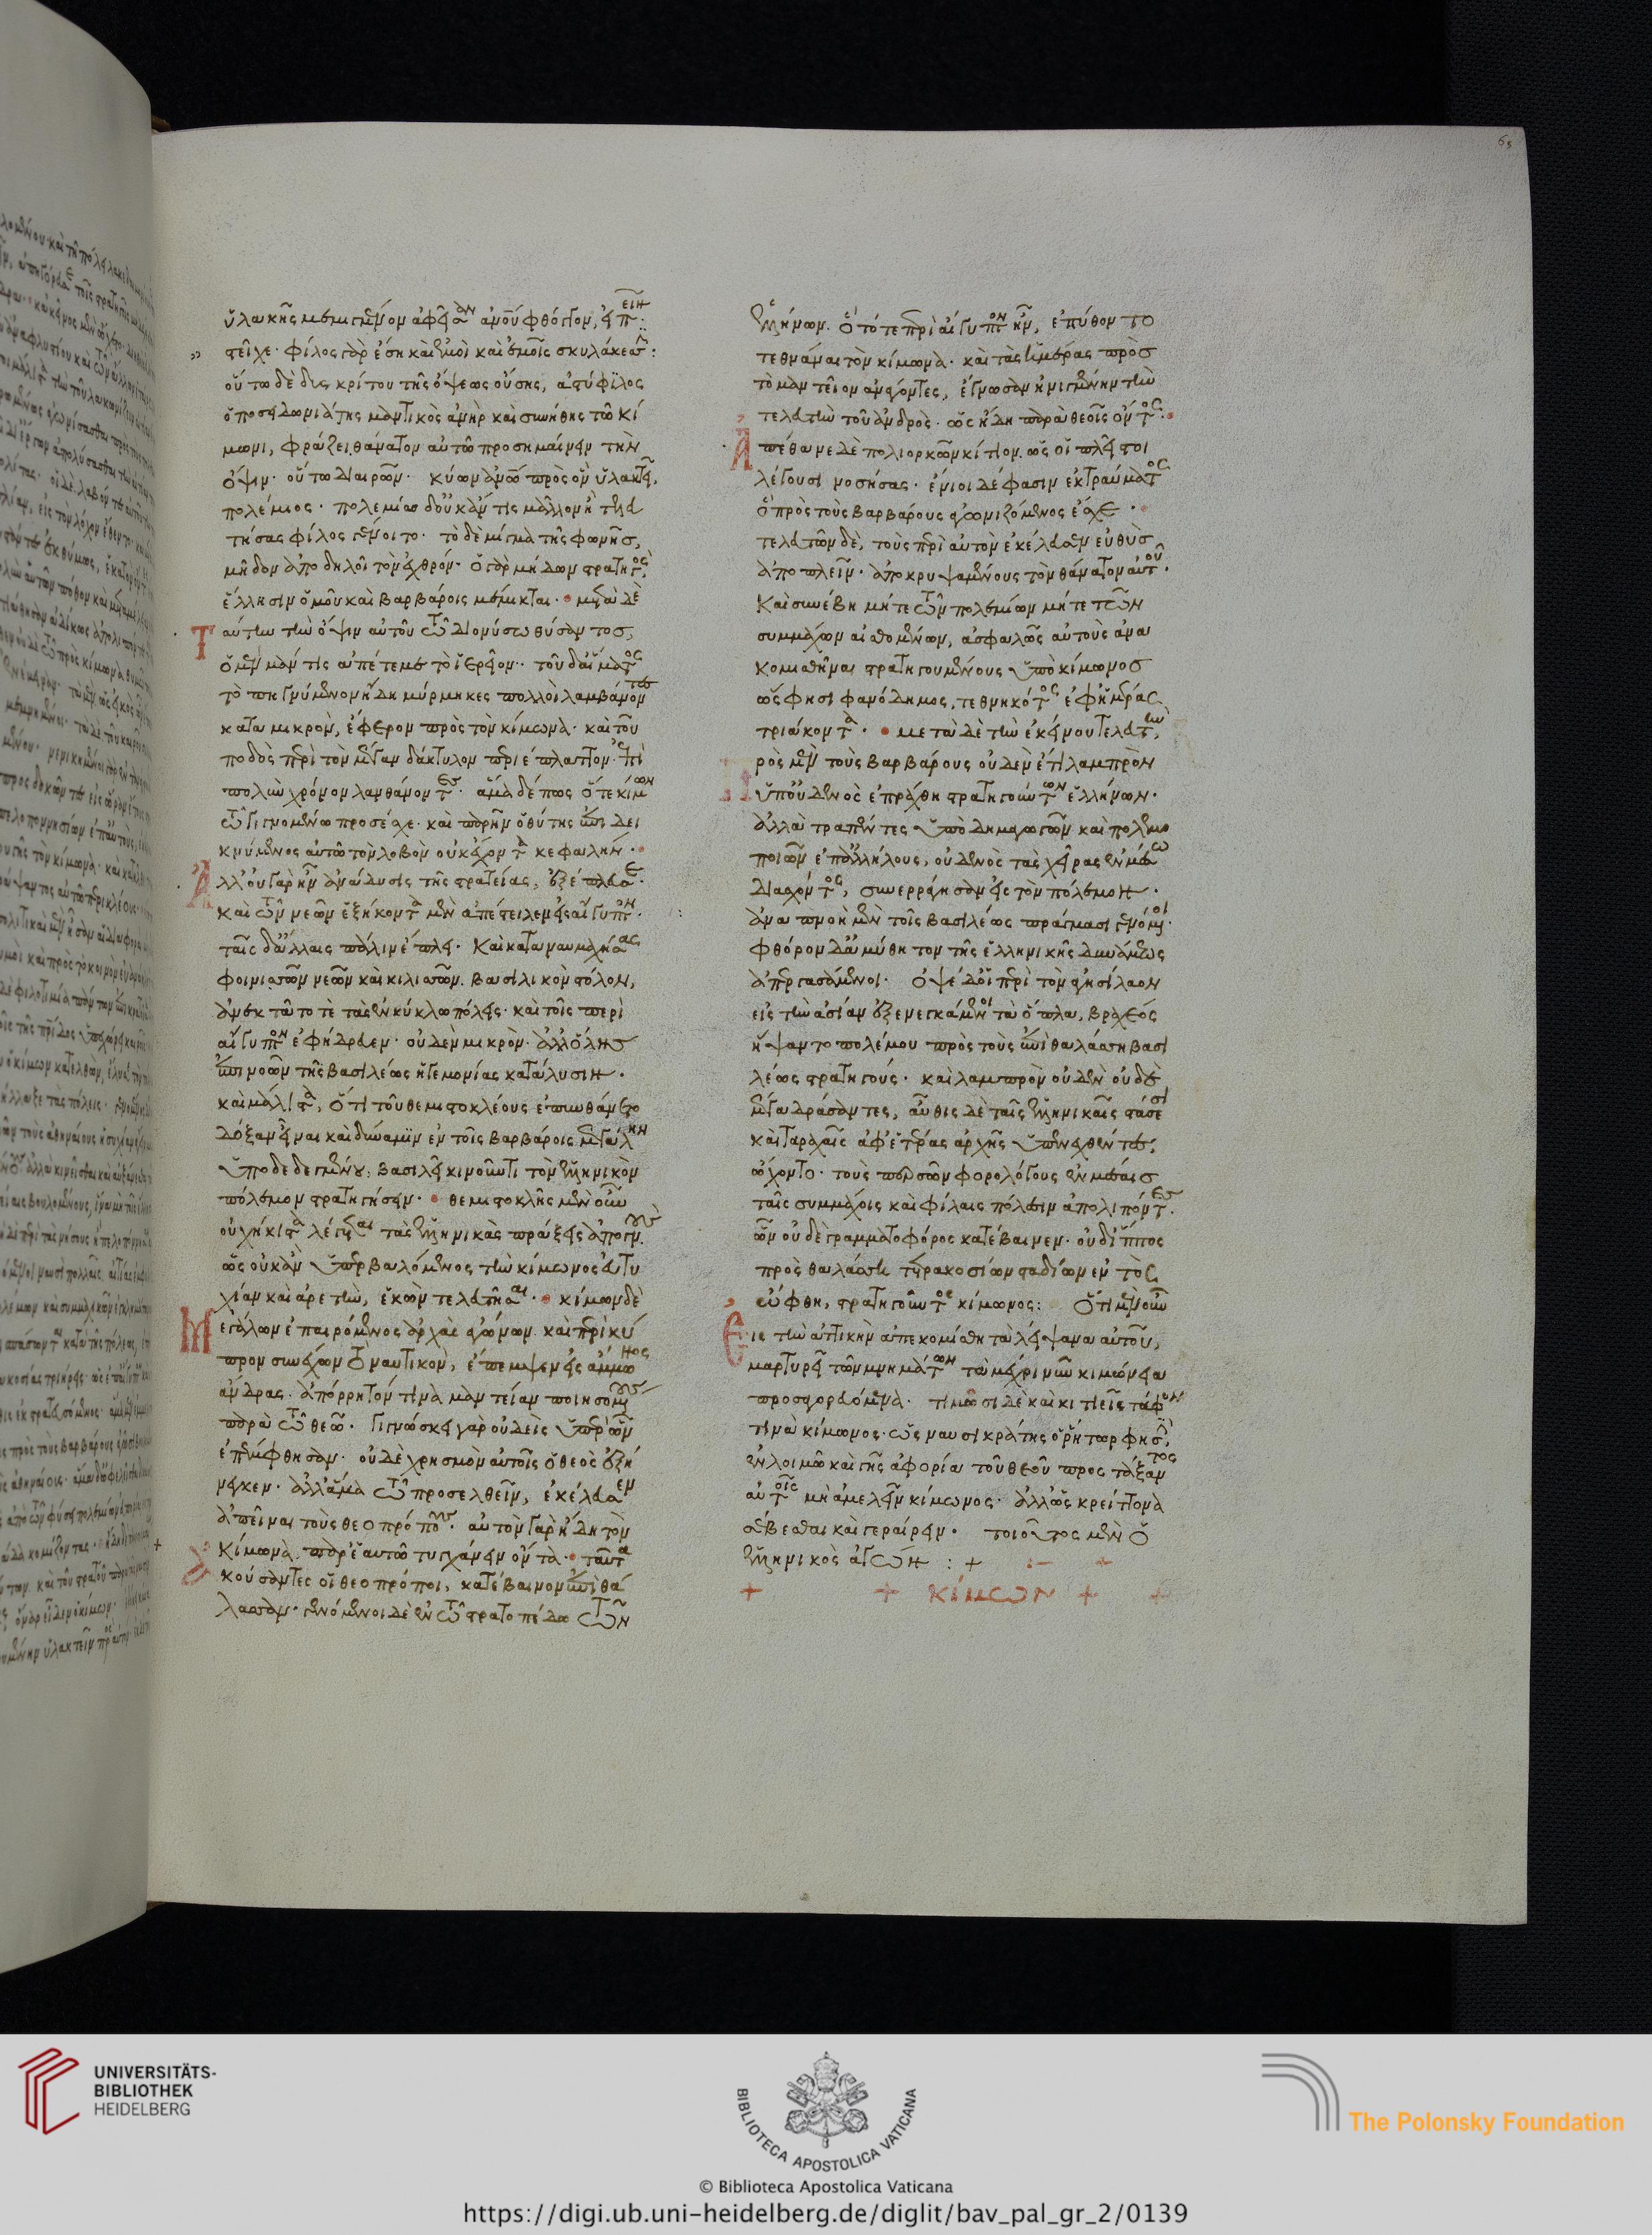 65
ὑλακῆς μεμιγμένον ἀφεῖσαν ἀνου φθόγγον, εἰπεῖν:
στεῖχε· φίλος γὰρ ἔση καὶ ἐμοὶ καὶ ἐμοῖς σκυλάκεσι:
οὕτω δὲ δυσκρίτου τῆς ὄψεως οὔσης, ἀστύφιλος
ὁ ποσειδωνιάτης μαντικὸς ἀνὴρ καὶ συνήθης τῶ κί
μωνι, φράζει θάνατον αὐτῶ προσημαίνειν τὴν
ὄψιν· οὕτω διαιρῶν· κύων ἀνω πρὸς ὃν ὑλακτεῖ,
πολέμιος· πολεμίω δ' οὐκ ἄν τις μᾶλλον ἢ τελευ
τήσας φίλος γένοιτο· τὸ δὲ μίγμα τῆς φωνῆς,
μῆδον ἀποδηλοῖ τὸν ἐχθρόν· ὁ γὰρ μήδων στρατὸς,
ἕλλησιν ὁμοῦ καὶ βαρβάροις μέμικται· μετὰ δὲ
ταύτην τὴν ὄψιν αὐτοῦ τῶ διονύσω θύσαντος,
ὁ μὲν μάντις ἀπέτεμε τὸ ἱερεῖον· τοῦ δ' αἵματος
τὸ πηγνύμενον ἤδη μύρμηκες πολλοὶ λαμβάνοντες
κατὰ μικρὸν, ἔφερον πρὸς τὸν κίμωνα· καὶ τοῦ
ποδὸς περὶ τὸν μέγαν δάκτυλον περιέπλαττον· ἐπὶ
πολὺν χρόνον λανθάνοντες· ἅμα δέ πως ὅτε κίμων
τῶ γιγνομένω προσέσχε· καὶ παρῆν ὁ θύτης ἐπιδει
κνύμενος αὐτῶ τὸν λοβὸν οὐκ ἔχοντα κεφαλήν·
ἀλλ' οὐ γὰρ ἦν ἀνάδυσις τῆς στρατείας, ἐξέπλευσε·
καὶ τῶν νεῶν ἑξήκοντα μὲν ἀπέστειλεν εἰς αἴγυπτον·
ταῖς δ' ἄλλαις πάλιν ἔπλει· καὶ καταναυμαχήσας
φοινισσῶν νεῶν καὶ κιλισσῶν βασιλικὸν στόλον,
ἀνεκτᾶτό τε τὰς ἐν κύκλω πόλεις· καὶ τοῖς περὶ
αἴγυπτον ἐφήδρευεν· οὐδὲν μικρὸν· ἀλλ' ὅλης
ἐπινοῶν τῆς βασιλέως ἡγεμονίας κατάλυσιν·
καὶ μάλιστα, ὅτι τοῦ θεμιστοκλέους ἐπυνθάνετο
δόξαν εἶναι καὶ δύναμιν ἐν τοῖς βαρβάροις μεγάλην
ὑποδεδεγμένου βασιλεῖ κινοῦντι τὸν ἑλληνικὸν
πόλεμον στρατηγήσειν· θεμιστοκλῆς μὲν οὖν
οὐχ ἥκιστα λέγεται τὰς ἑλληνικὰς πράξεις ἀπογνοὺς
ὡς οὐκ ἂν ὑπερβαλόμενος τὴν κίμωνος εὐτυ
χίαν καὶ ἀρετὴν, ἑκὼν τελευτῆσαι· κίμων δὲ
μεγάλων ἐπαιρόμενος ἀρχὰς ἀγώνων καὶ περὶ κύ
προν συνέχων τὸ ναυτικὸν, ἔπεμψεν εἰς ἄμμωνος
ἄνδρας ἀπόρρητόν τινα μαντείαν ποιησομένους
παρὰ τῶ θεῶ· γιγνώσκει γὰρ οὐδεὶς ὑπὲρ ὧν
ἐπέμφθησαν· οὐδὲ χρησμὸν αὐτοῖς ὁ θεὸς ἐξή
νεγκεν· ἀλλ' ἅμα τῶ προσελθεῖν, ἐκέλευσεν
ἀπιέναι τοὺς θεοπρόπους· αὐτὸν γὰρ ἤδη τὸν
κίμωνα παρ' ἑαυτῶ τυγχάνειν ὄντα· ταῦτα ἀ
κούσαντες οἱ θεοπρόποι, κατέβαινον ἐπὶ θά
λασσαν· γενόμενοι δὲ ἐν τῶ στρατοπέδω τῶν
ἑλλήνων ὃ τότε περὶ αἴγυπτον ἦν, ἐπύθοντο
τεθνάναι τὸν κίμωνα· καὶ τὰς ἡμέρας πρὸς
τὸ μαντεῖον ἀνάγοντες, ἔγνωσαν ἠνιγμένην τὴν
τελευτὴν τοῦ ἀνδρὸς· ὡς ἤδη παρὰ θεοῖς ὄντος·
ἀπέθανε δὲ πολιορκῶν κίτιον ὡς οἱ πλεῖστοι
λέγουσι νοσήσας· ἔνιοι δέ φασιν ἐκ τραύματος
ὃ πρὸς τοὺς βαρβάρους ἀγωνιζόμενος ἔσχε·
τελευτῶν δὲ, τοὺς περὶ αὐτὸν ἐκέλευσεν εὐθὺς
ἀποπλεῖν· ἀποκρυψαμένους τὸν θάνατον αὐτοῦ·
καὶ συνέβη μήτε τῶν πολεμίων μήτε τῶν
συμμάχων αἰσθομένων, ἀσφαλῶς αὐτοὺς ἀνα
κομισθῆναι στρατηγουμένους ὑπὸ κίμωνος
ὥς φησι φανόδημος, τεθνηκότος ἐφ' ἡμέρας
τριάκοντα· μετὰ δὲ τὴν ἐκείνου τελευτὴν,
πρὸς μὲν τοὺς βαρβάρους οὐδὲν ἔτι λαμπρὸν
ὑπ' οὐδενὸς ἐπράχθη στρατηγοῦντος τῶν ἑλλήνων·
ἀλλὰ τραπέντες ὑπὸ δημαγωγῶν καὶ πολεμο
ποιῶν ἐπ' ἀλλήλους, οὐδενὸς τὰς χεῖρας ἐν μέσω
διασχόντος, συνερράγησαν εἰς τὸν πόλεμον·
ἀναπνοὴ μὲν τοῖς βασιλέως πράγμασι γενόμενοι·
φθόρον δ' ἀμύθητον τῆς ἑλληνικῆς δυνάμεως
ἀπεργασάμενοι· ὀψὲ δ' οἱ περὶ τὸν ἀγησίλαον
εἰς τὴν ἀσίαν ἐξενεγκάμενοι τὰ ὅπλα, βραχέος
ἥψαντο πολέμου πρὸς τοὺς ἐπὶ θαλάσση βασι
λέως στρατηγούς· καὶ λαμπρὸν οὐδὲν οὐδὲ
μέγα δράσαντες, αὖθις δὲ ταῖς ἑλληνικαῖς στάσεσι
καὶ ταραχαῖς ἀφ' ἑτέρας ἀρχῆς ὑπενεχθέντες,
ὤχοντο· τοὺς περσῶν φορολόγους ἐν μέσαις
ταῖς συμμάχοις καὶ φίλαις πόλεσιν ἀπολιπόντες·
ὧν οὐδὲ γραμματοφόρος κατέβαινεν· οὐδ' ἵππος
πρὸς θαλάσση τετρακοσίων σταδίων ἐντὸς
ὤφθη, στρατηγοῦντος κίμωνος: ὅτι μὲν οὖν
εἰς τὴν ἀττικὴν ἀπεκομίσθη τὰ λείψανα αὐτοῦ,
μαρτυρεῖ τῶν μνημάτων τὰ μέχρι νῦν κιμώνεια
προσαγορευόμενα· τιμῶσι δὲ καὶ κιτιεῖς τάφον
τινὰ κίμωνος· ὡς ναυσικράτης ὁ ῥήτωρ φησὶ,
ἐν λοιμῶ καὶ γῆς ἀφορία τοῦ θεοῦ προστάξαντος
αὐτοῖς μὴ ἀμελεῖν κίμωνος· ἀλλ' ὡς κρείττονα
σέβεσθαι καὶ γεραίρειν· τοιοῦτος μὲν ὁ
ἑλληνικὸς ἀγών : +
+ + κίμων + +
UNIVERSITÄTS-
BIBLIOTHEK
HEIDELBERG
BIBLIOTECA APOSTOLICA VATICANA
The Polonsky Foundation
© Biblioteca Apostolica Vaticana
https://digi.ub.uni-heidelberg.de/diglit/bav_pal_gr_2/0139